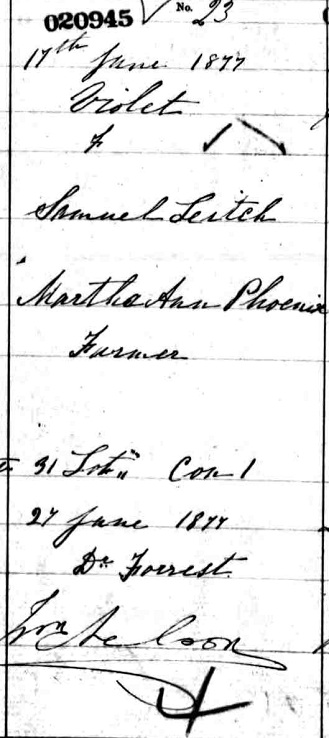 020945 No. 23
17th June 1877
Violet
f
Samuel Leitch
Martha Ann Phoenix
Farmer
31 Lot " Con 1
27 June 1877
Dr Forrest